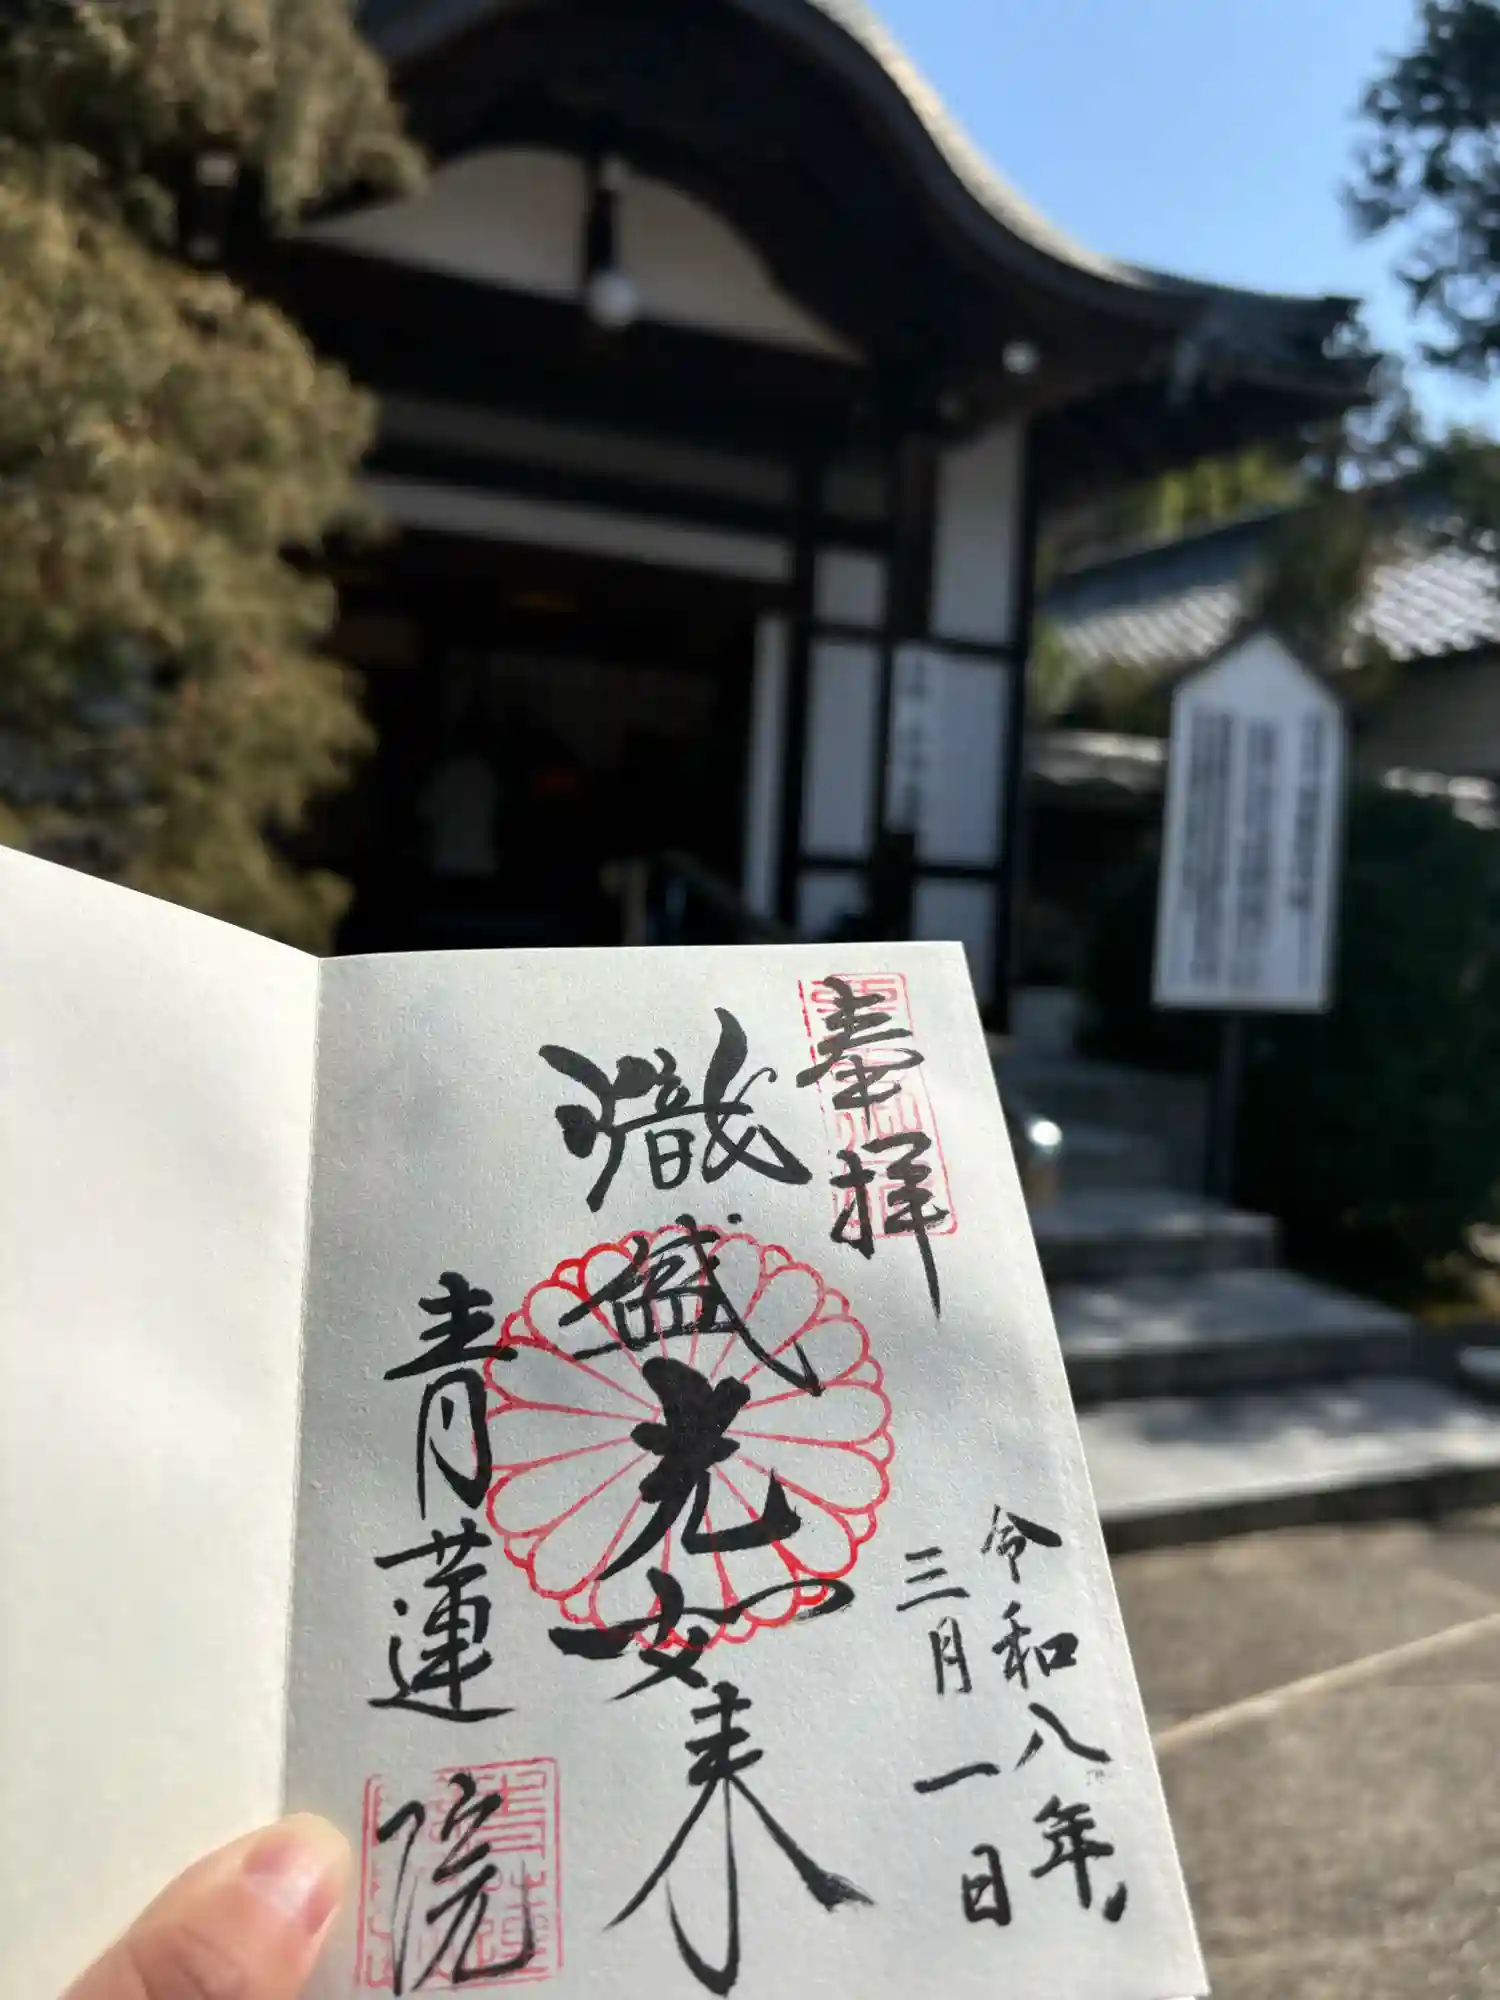 奉拝
熾盛光如来
青蓮院
令和八年
三月一日